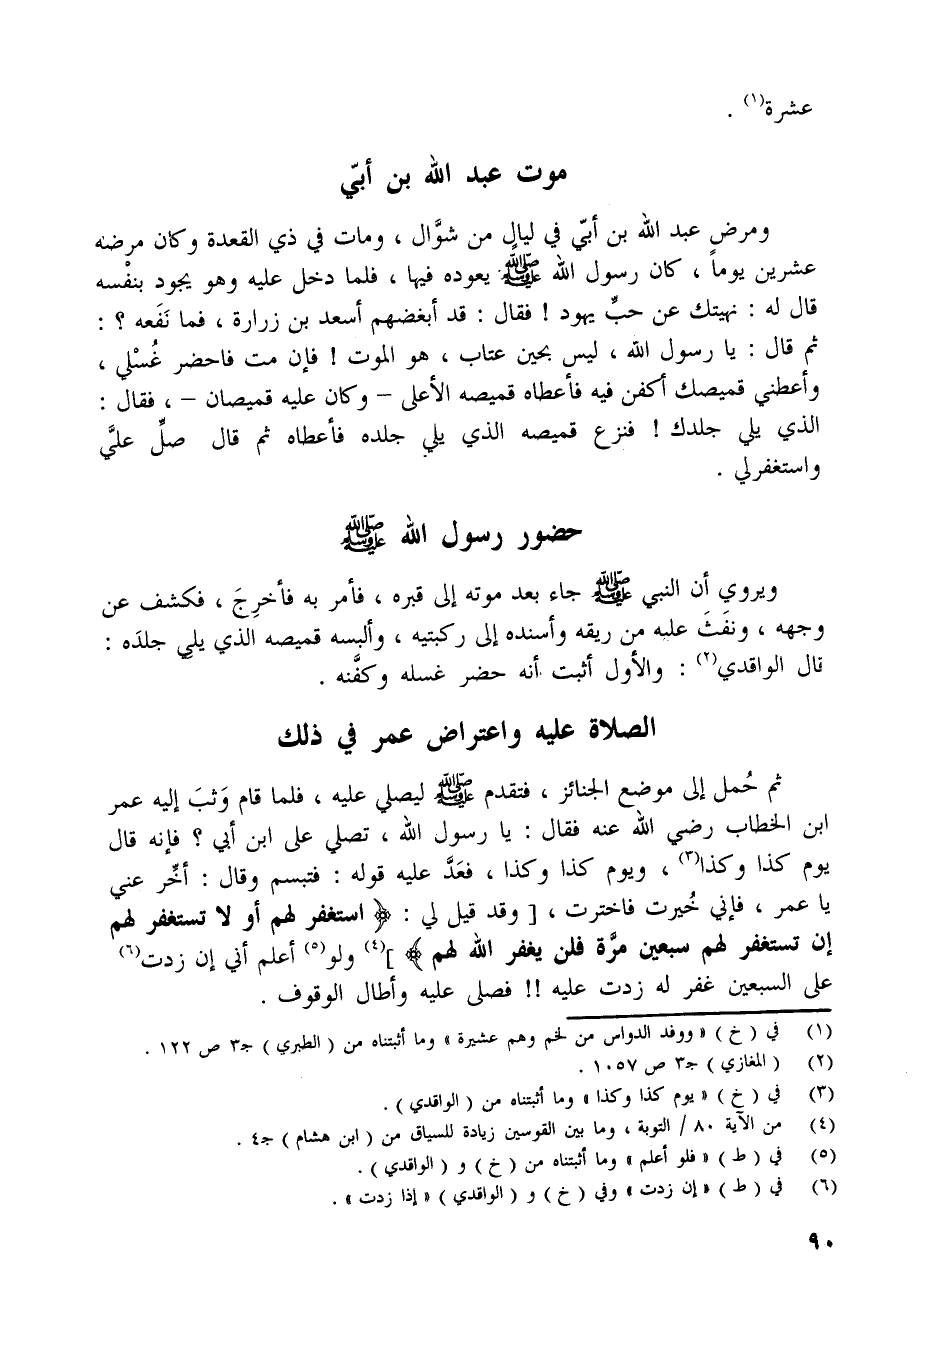 عشرة(١) .
موت عبد الله بن أبيّ
ومرض عبد الله بن أبيّ في ليالٍ من شوَّال ، ومات في ذي القعدة وكان مرضه
عشرين يوماً ، كان رسول الله ﷺ يعوده فيها ، فلما دخل عليه وهو يجود بنفْسه
قال له : نهيتك عن حبِّ يهود ! فقال : قد أبغضهم أسعد بن زرارة ، فما نَفَعه ؟ :
ثم قال : يا رسول الله ، ليس بحين عتاب ، هو الموت ! فإن مت فاحضر غُسْلي ،
وأعطني قميصك أكفن فيه فأعطاه قميصه الأعلى – وكان عليه قميصان – ، فقال :
الذي يلي جلدك ! فنزع قميصه الذي يلي جلده فأعطاه ثم قال صلِّ عليَّ
واستغفرلي .
حضور رسول الله ﷺ
ويروي أن النبي ﷺ جاء بعد موته إلى قبره ، فأمر به فأخرِجَ ، فكشف عن
وجهه ، ونفَثَ عليه من ريقه وأسنده إلى ركبتيه ، وألبسه قميصه الذي يلي جلدَه :
قال الواقدي(٢) : والأول أثبت أنه حضر غسله وكفَّنه .
الصلاة عليه واعتراض عمر في ذلك
ثم حُمل إلى موضع الجنائز ، فتقدم ﷺ ليصلي عليه ، فلما قام وَثبَ إليه عمر
ابن الخطاب رضي الله عنه فقال : يا رسول الله ، تصلي على ابن أبي ؟ فإنه قال
يوم كذا وكذا(٣) ، ويوم كذا وكذا ، فعَدَّ عليه قوله : فتبسم وقال : أخِّر عني
يا عمر ، فإني خُيرت فاخترت ، [ وقد قيل لي : ﴿ استغفر لهم أو لا تستغفر لهم
إن تستغفر لهم سبعين مرَّة فلن يغفر الله لهم ﴾ ](٤) ولو(٥) أعلم أني إن زدت(٦)
على السبعين غفر له زدت عليه !! فصلى عليه وأطال الوقوف .
(١) في ( خ ) « ووفد الدواس من لخم وهم عشيرة » وما أثبتناه من ( الطبري ) جـ٣ ص ١٢٢ .
(٢) ( المغازي ) جـ٣ ص ١٠٥٧ .
(٣) في ( خ ) « يوم كذا وكذا » وما أثبتناه من ( الواقدي ) .
(٤) من الآية ٨٠ / التوبة ، وما بين القوسين زيادة للسياق من ( ابن هشام ) جـ٤ .
(٥) في ( ط ) « فلو أعلم » وما أثبتناه من ( خ ) و ( الواقدي ) .
(٦) في ( ط ) « إن زدت » وفي ( خ ) و ( الواقدي ) « إذا زدت » .
٩٠